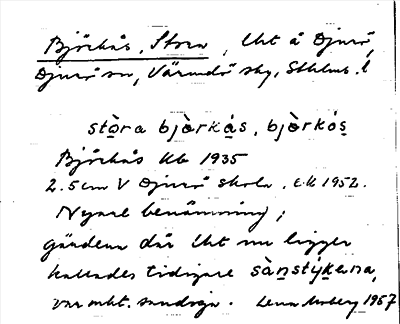 Björkås, Stora, Uht å Djurö,
Djurö sn, Värmdö skg, Sthlms. l
stòra bjò̀rkás, bjò̀rkós
Björkås Kb 1935
2.5 cm V Djurö skola, ek 1952.
Nyare benämning;
gärdena där Uht nu ligger
kallades tidigare sànstýkena,
var mkt. sandiga. Lena Moberg 1967